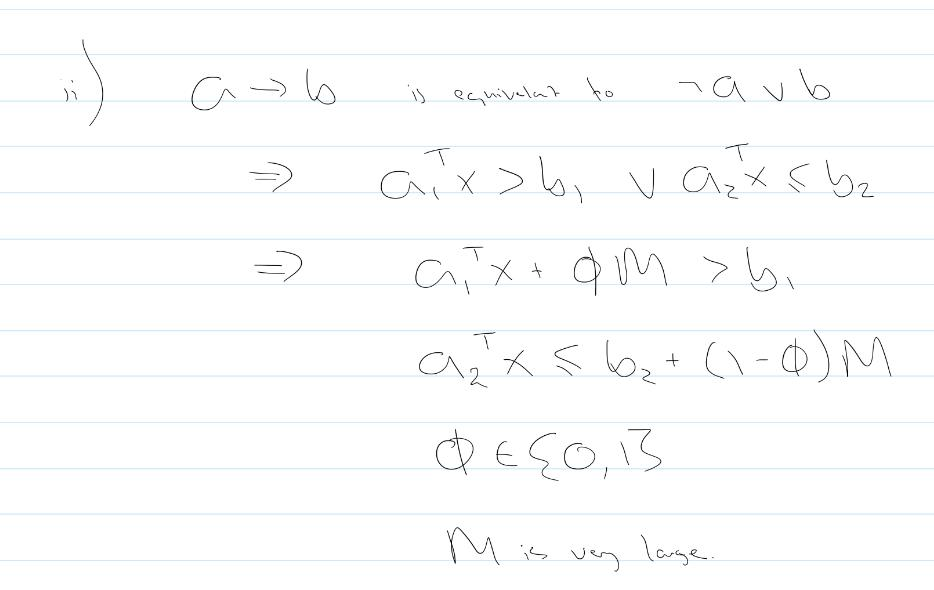 ii) a → b is equivelat to ¬a ∨ b
⇒ a₁ᵀx > b₁ ∨ a₂ᵀx ≤ b₂
⇒ a₁ᵀx + ϕM > b₁
a₂ᵀx ≤ b₂ + (1-ϕ)M
ϕ ∈ {0,1}
M is very large.